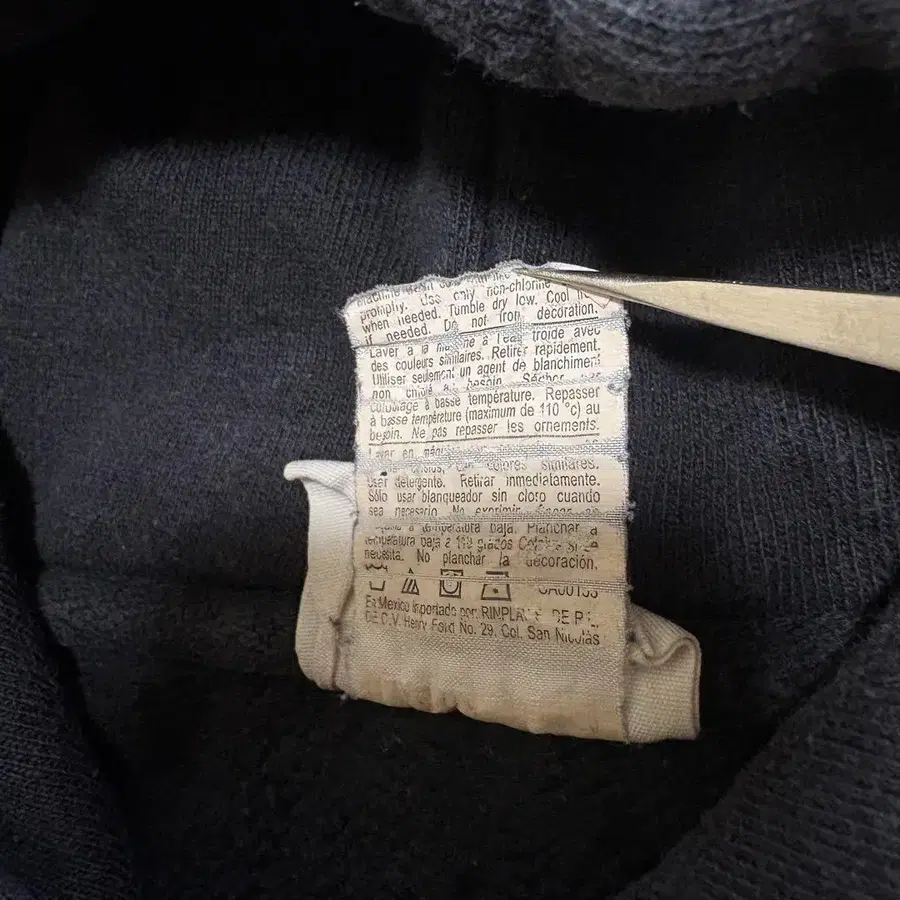 promptly. Use only non-chlorine
when needed. Tumble dry low. Cool
if needed. Do not iron decoration.
Laver à la machine à l'eau froide avec
des couleurs similaires. Retirer rapidement.
Utiliser seulement un agent de blanchiment
non besoin. Sécher
à basse température. Repasser
à basse température (maximum de 110 °c) au
besoin. Ne pas repasser les ornements.
Lavar en
colores similares.
Usar detergente. Retirar inmediatamente.
Sólo usar blanqueador sin cloro cuando
sea necesario. No exprimir.
a temperatura baja. Planchar a
temperatura baja a 110 grados si se
necesita. No planchar la decoración.
En Mexico Importado por:
DE C.V. Henry Ford No. 29, Col. San Nicolás